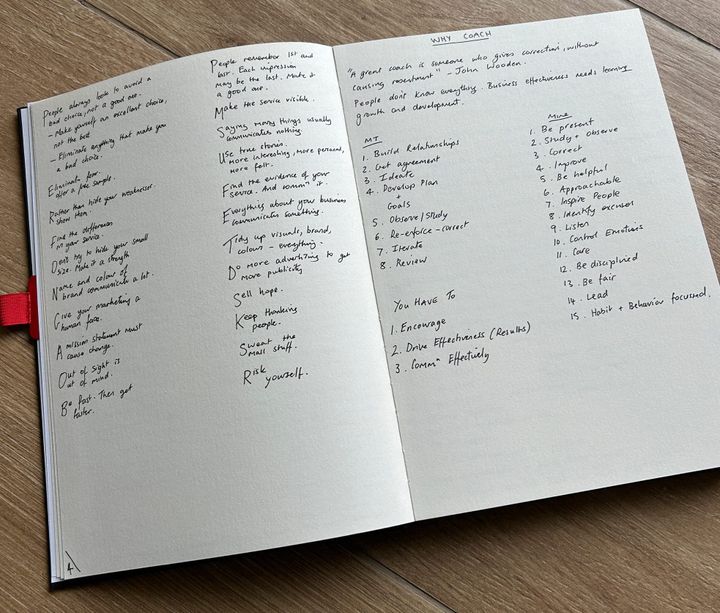 People always look to avoid a
bad choice, not a good one.
- Make yourself an excellent choice,
not the best
- Eliminate anything that make you
a bad choice.
Eliminate fear.
offer a free sample.
Rather than hide your weaknesses.
Show them.
Find the difference
in your service.
Don't try to hide your small
size. Make it a strength
Name and colour of
brand communicate a lot.
Give your marketing a
human face.
A mission statement must
cause change.
Out of sight is
out of mind.
Be fast. Then get
faster.
4
People remember 1st and
last. Each impression
may be the last. Make it
a good one.
Make the service visible.
Saying many things usually
communicates nothing.
Use true stories.
More interesting, more personal,
more felt.
Find the evidence of your
service. And commⁿ it.
Everything about your business
communicates something.
Tidy up visuals, brand,
colours - everything.
Do more advertising to get
more publicity
Sell hope.
Keep thanking
people.
Sweat the
small stuff.
Risk
yourself.
WHY COACH
"A great coach is someone who gives correction, without
causing resentment" - John Wooden.
People don't know everything. Business effectiveness needs learning
growth and development.
MT
1. Build Relationships
2. Get agreement
3. Ideate
4. Develop Plan
+
Goals
5. Observe/Study
6. Re-enforce - correct
7. Iterate
8. Review
Mine
1. Be present
2. Study + observe
3. Correct
4. Improve
5. Be helpful
6. Approachable
7. Inspire People
8. Identify excuses
9. Listen
10. Control Emotions
11. Care
12. Be disciplined
13. Be fair
14. Lead
15. Habit + Behavior focussed.
YOU HAVE TO
1. Encourage
2. Drive Effectiveness (Results)
3. Commⁿ Effectively